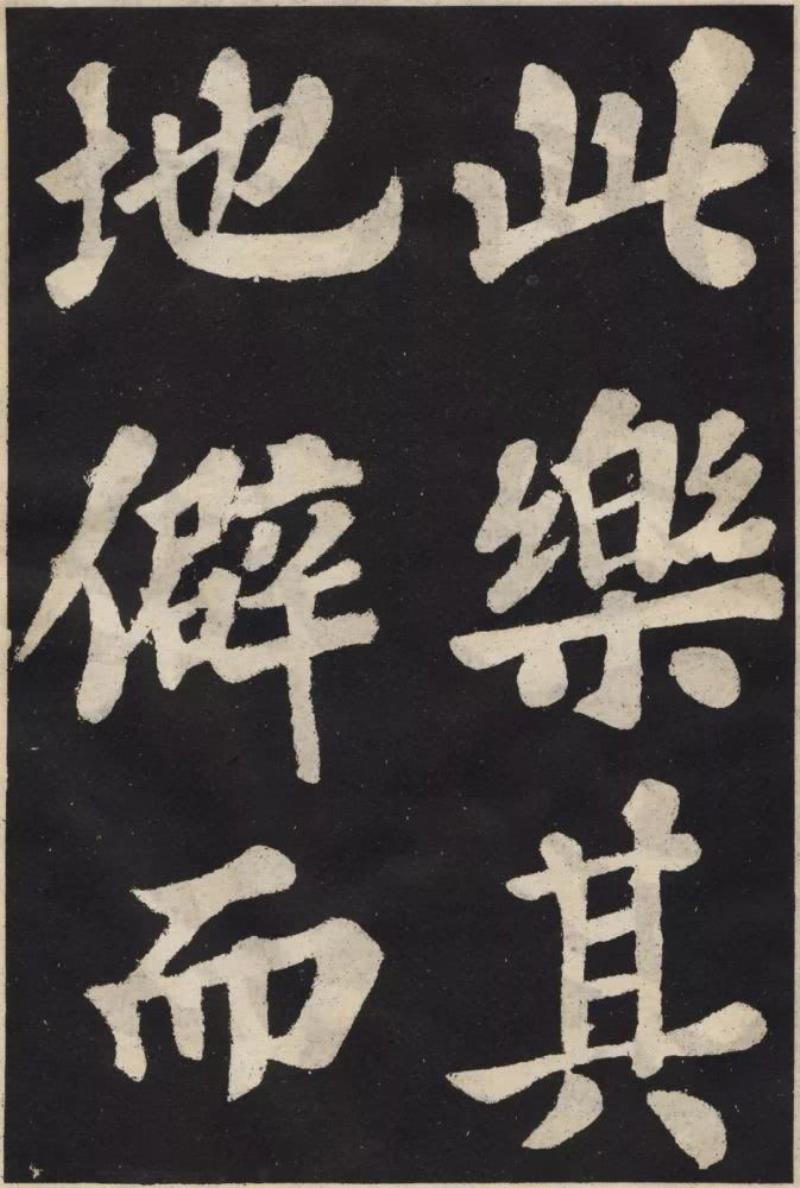 此樂其
地僻而